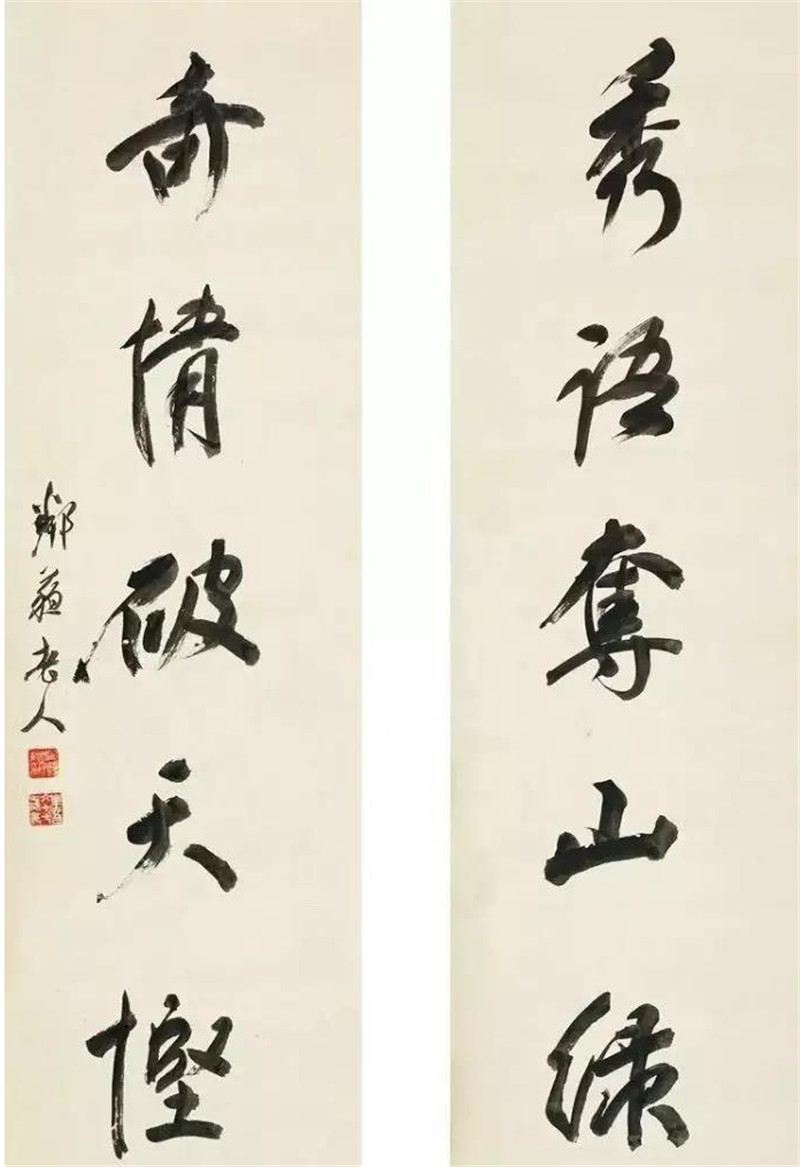 秀語奪山綠
奇情破天慳
鄰蘇老人